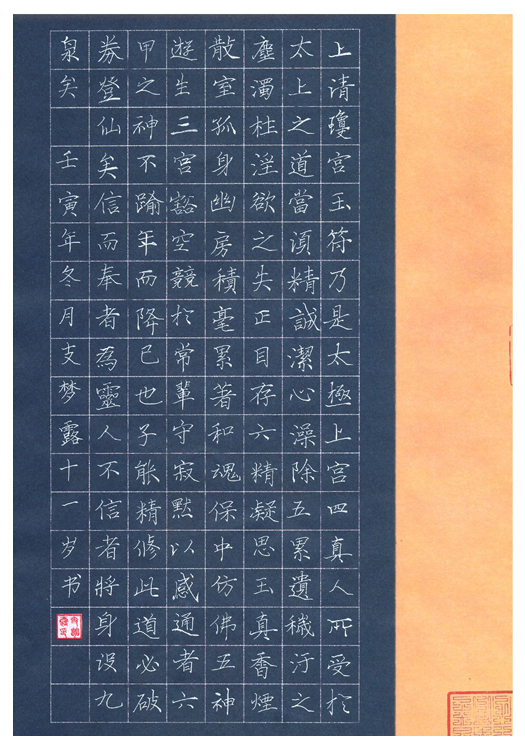 上清瓊宮玉符乃是太極上宮四真人所受於
太上之道當須精誠潔心澡除五累遺穢汙之
塵濁杜淫欲之失正目存六精凝思玉真香煙
散室孤身幽房積毫累著和魂保中仿佛五神
遊生三宮豁空競於常輩守寂默以感通者六
甲之神不踰年而降已也子能精修此道必破
券登仙矣信而奉者為靈人不信者將身沒九
泉矣 壬寅年冬月支梦露十一岁书